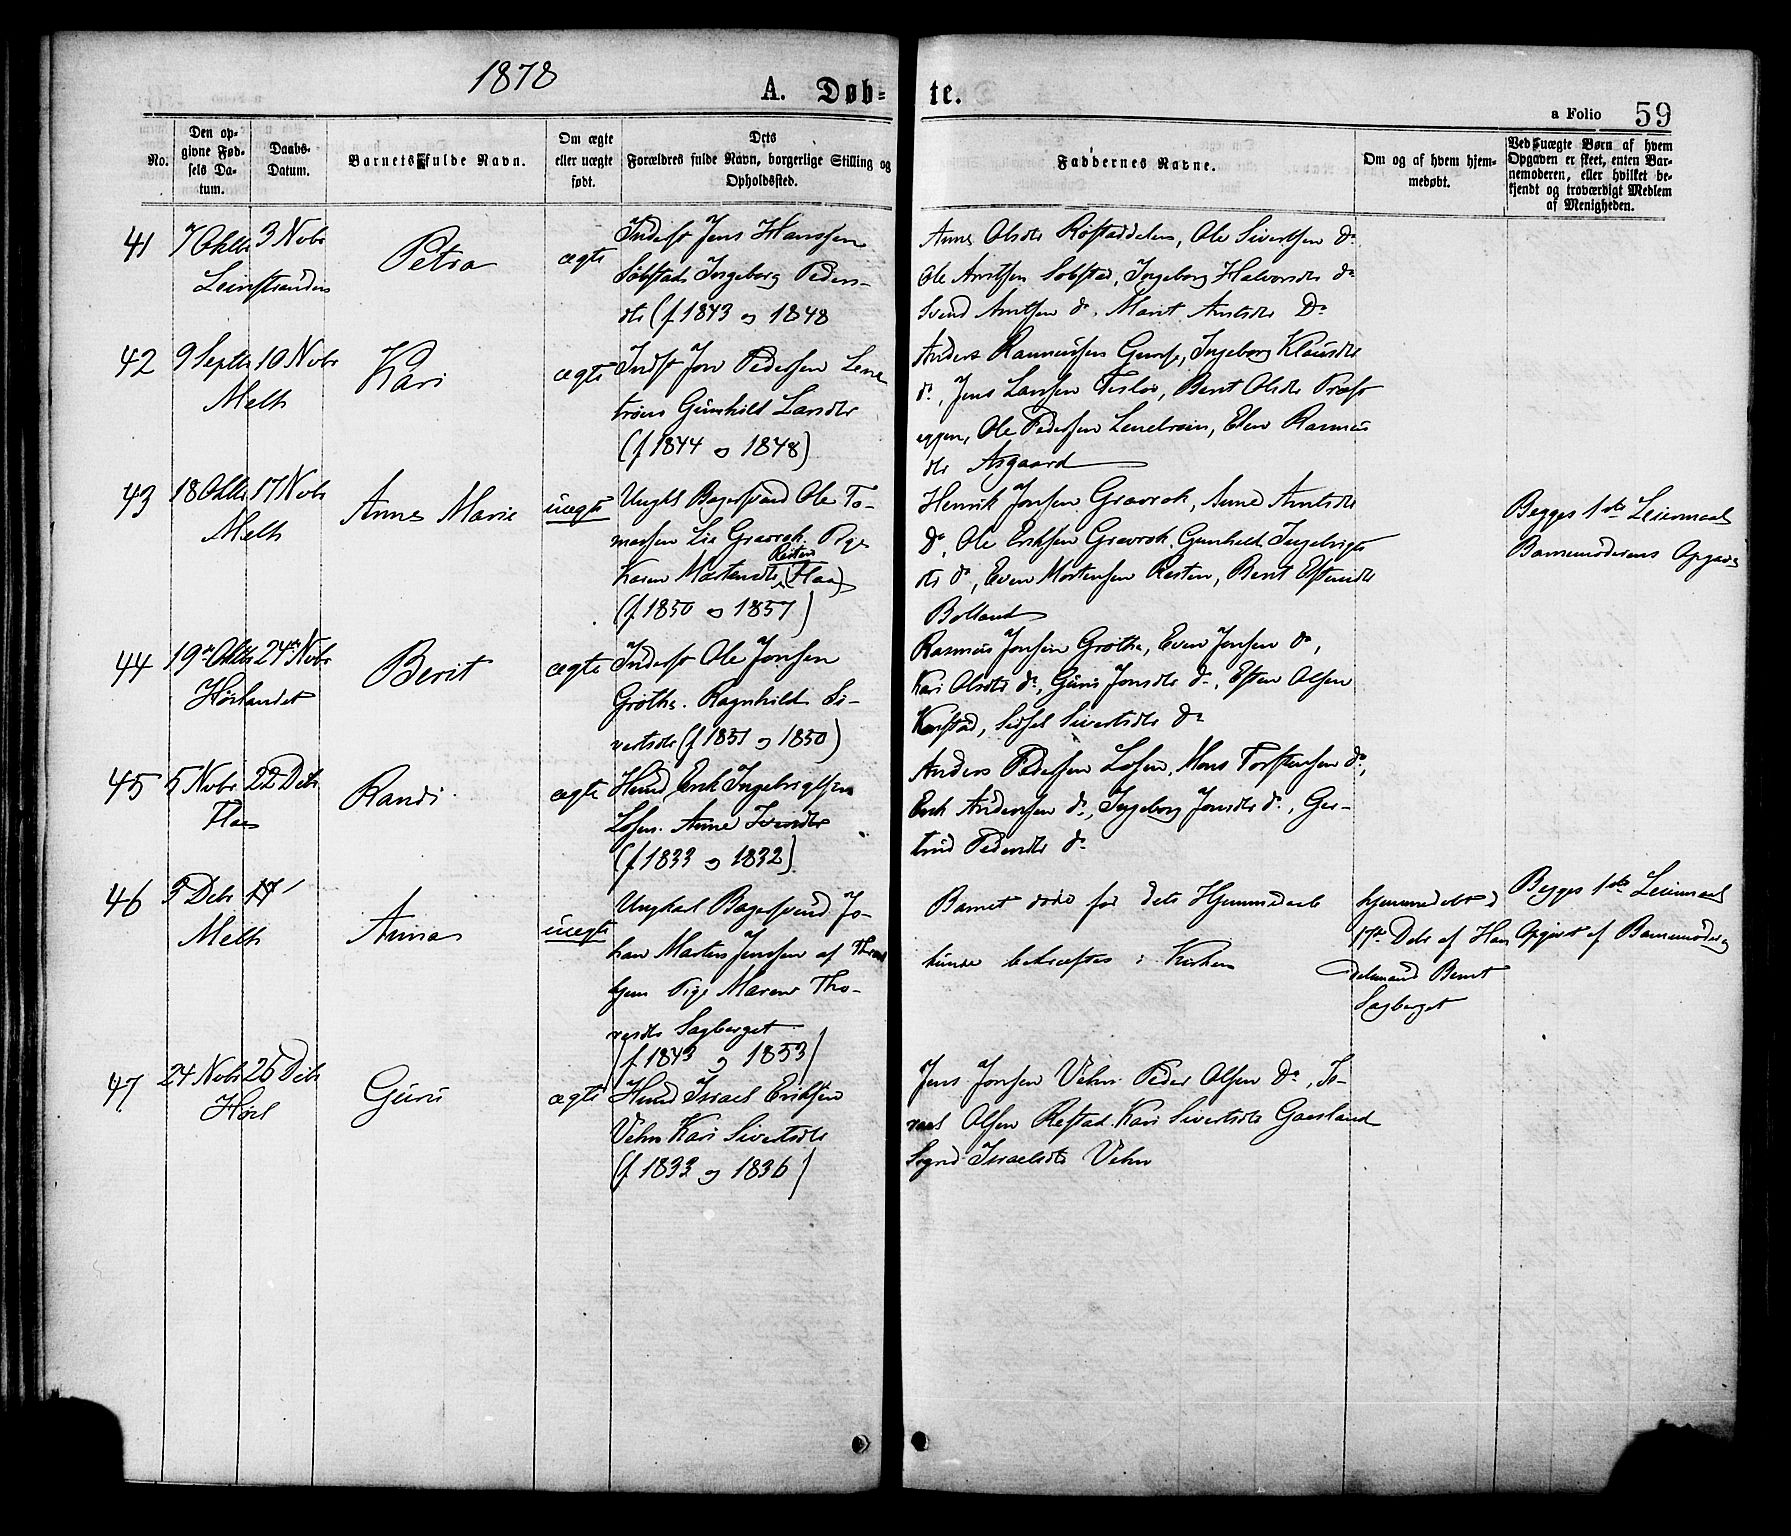 1878
A. Døb-
te.
a Folio 59
No.
Den op-
givne Fød-
sels Da-
tum.
Daabs-
Datum.
Barnets fulde Navn.
Om ægte
eller uægte
født.
Dets
Forældres fulde Navn, borgerlige Stilling og
Opholdssted.
Faddernes Navne.
Om og af hvem hjem-
medøbt.
Ved uægte Børn af hvem
Opgaven er skeet, enten Bar-
nemoderen, eller hvilket be-
kjendt og troværdigt Medlem
af Menigheden.
41
7 Oktbr
3 Novbr
Leinstranden
Petra
ægte
Inderst Jens Hanssen
Søbstad Ingeborg Peders-
dtr (f 1843 og 1848
Anne Olsdtr Røstaddelen, Ole Sivertsen do
Ole Arntsen Søbstad, Ingeborg Halvorsdtr do
Svend Arntsen do, Marit Arntsdtr Do
42
9 Septbr
10 Novbr
Melh
Kari
ægte
Indst Jon Pedersen Lene
trøen Gunhild Larsdtr
(f 1844 og 1848)
Anders Rasmussen Gumse, Ingeborg Klausdtr
do, Jens Larssen Teslø, Berit Olsdtr Præst
eggen, Ole Pedersen Lenetrøen, Elen Rasmus
dtr Asgaard
43
18 Oktbr
17 Novbr
Melh
Anne Marie
uægte
Ungkl Bagersvend Ole To-
massen Lie Gravrok. Pige
Karen Mortensdtr Resten (Flaa)
(f 1850 og 1857)
Henrik Jonsen Gravrok, Anne Arntsdtr
Do, Ole Eriksen Gravrok, Gunhild Ingebrigts
dtr do, Even Mortensen Resten, Berit Estensdtr
Bolland
Begges 1ste Leiermaal
Barnemoderens Opgave
44
19de Oktbr
24de Novbr
Hørlandet
Berit
ægte
Inderst Ole Jonsen
Grøthe. Ragnhild Si-
vertsdtr (f 1851 og 1850)
Rasmus Jonsen Grøthe, Even Jonsen do,
Kari Olsdtr do, Guru Jonsdtr do, Esten Olsen
Kregstad, Sidsel Sivertsdtr do
45
5 Novbr
22 Debr
Flaa
Randi
ægte
Husmd Erik Ingebrigtsen
Losen. Anne Iversdtr
(f 1833 og 1832)
Anders Pedersen Losen, Mons Torstensen do,
Erik Andersen do, Ingeborg Jonsdtr do, Ger-
trud Pedersdtr do
46
3 Debr
17
Melh
Anna
uægte
Ungkal Bagersvend Jo-
han Martin Jenssen af Thrond
hjem Pige Maren Tho-
resdtr Sagberget
(f 1843 og 1853)
Barnet døde før dets Hjemmedaab
kunde bekræftes i Kirken
hjemmedøbt d
17de Debr af Han
delsmand Bernt
Sagberget
Begges 1ste Leiermaal
Opgivet af Barnemoderen
47
24 Novbr
26 Debr
Hørl
Guru
ægte
Husmd Israel Eriksen
Vehn Kari Sivertsdtr
(f 1833 og 1836)
Jens Jonsen Vehn. Peder Olsen Do, Is-
rael Olsen Refstad. Kari Sivertsdtr Gaasland
Sigrid Israelsdtr Vehn